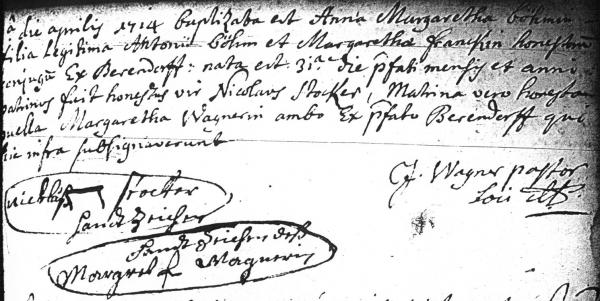 die aprilis 1714 baptizata est Anna Margaretha böhmin
filia legitima Antonii böhm et Margaretha franckin honestorum
conjugum Ex Berendorff: nata est 31.a die pfati mensis et anni
patrinus fuit honestus vir Nicolaus Stocker, Matrina vero honesta
puella Margaretha Wagnerin ambo Ex pfato Berendorff qui
hic infra subsignaverunt
J. Wagner pastor
loci
nicklaß stocker
handt zeichen
handt zeichen deß
Margret Wagnerin